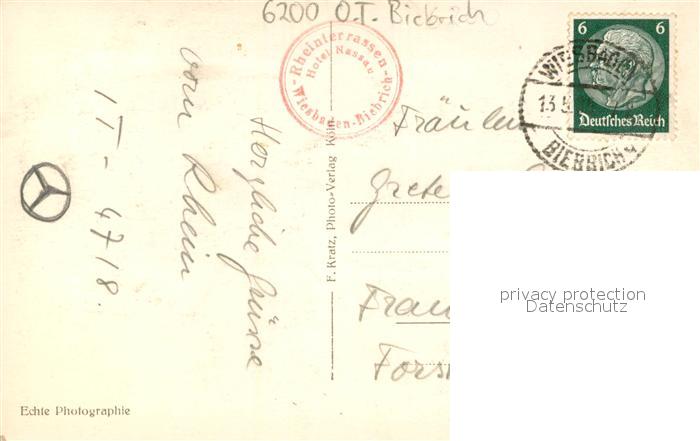 6200 O.T. Biebrich
Rheinterrassen
Hotel Nassau
Wiesbaden-Biebrich
6 6
Deutsches Reich
WIESBADEN
13.
BIEBRICH
Herzliche Grüsse
vom Rhein
IT-4718.
Fräulein
Grete
Forst
F. Kratz, Photo-Verlag Köln
Echte Photographie
privacy protection
Datenschutz